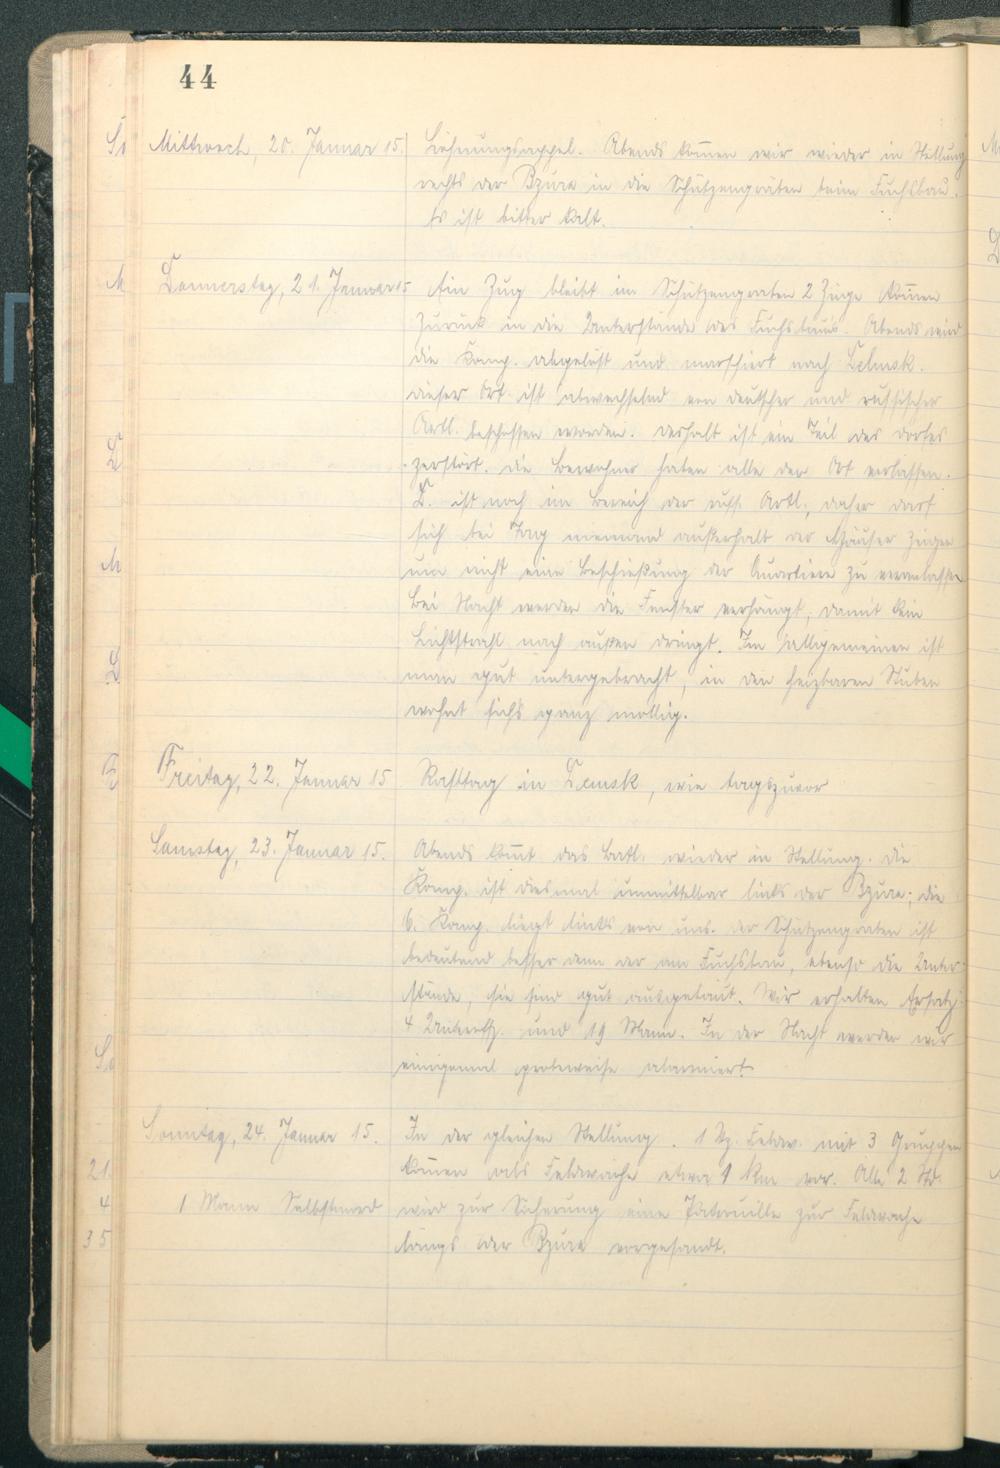 44
Mittwoch, 20. Januar 15. Löhnungsappel. Abends kom̄en wir wieder in Stellung
rechts der Bzura in die Schützengräben beim Fuchsbau.
Es ist bitter kalt.
Donnerstag, 21. Januar 15 Ein Zug bleibt im Schützengraben 2 Züge kom̄en
zurück in die Unterstände des Fuchsbaus. Abends wird
die Komp. abgelöst und marschiert nach
dieser Ort ist abwechselnd von deutscher und russischer
Artl. beschossen worden. Deshalb ist ein Teil des Dorfes
zerstört. Die Bewohner haben alle den Ort verlassen.
Z. ist noch im Bereich der russ. Artl., daher darf
sich bei Tag niemand außerhalb der Häuser zeigen
um nicht eine Beschießung der Quartiere zu veranlassen
Bei Nacht werden die Fenster verhängt, damit kein
Lichtstrahl nach außen dringt. Im allgemeinen ist
man gut untergebracht, in den heizbaren Stuben
wohnt sichs ganz mollig.
Freitag, 22. Januar 15 Rasttag in , wie tagszuvor
Samstag, 23. Januar 15. Abends kom̄t das Batl. wieder in Stellung. Die
Komp. ist diesmal unmittelbar links der Bzura; die
6. Komp. liegt links von uns. Der Schützengraben ist
bedeutend besser denn der am Fuchsbau, ebenso die Unter-
stände, sie sind gut ausgebaut. Wir erhalten Ersatz
4 Unteroffz. und 19 Mann. In der Nacht werden wir
einigemal probeweise alarmiert.
Sonntag, 24. Januar 15. In der gleichen Stellung. 1 Vz. Feldw. mit 3 Gruppen
kom̄en als Feldwache etwa 1 km vor. Alle 2 Std.
1 Mann Selbstmord wird zur Sicherung eine Patrouille zur Feldwache
längs der Bzura vorgesandt.
21.
4
35